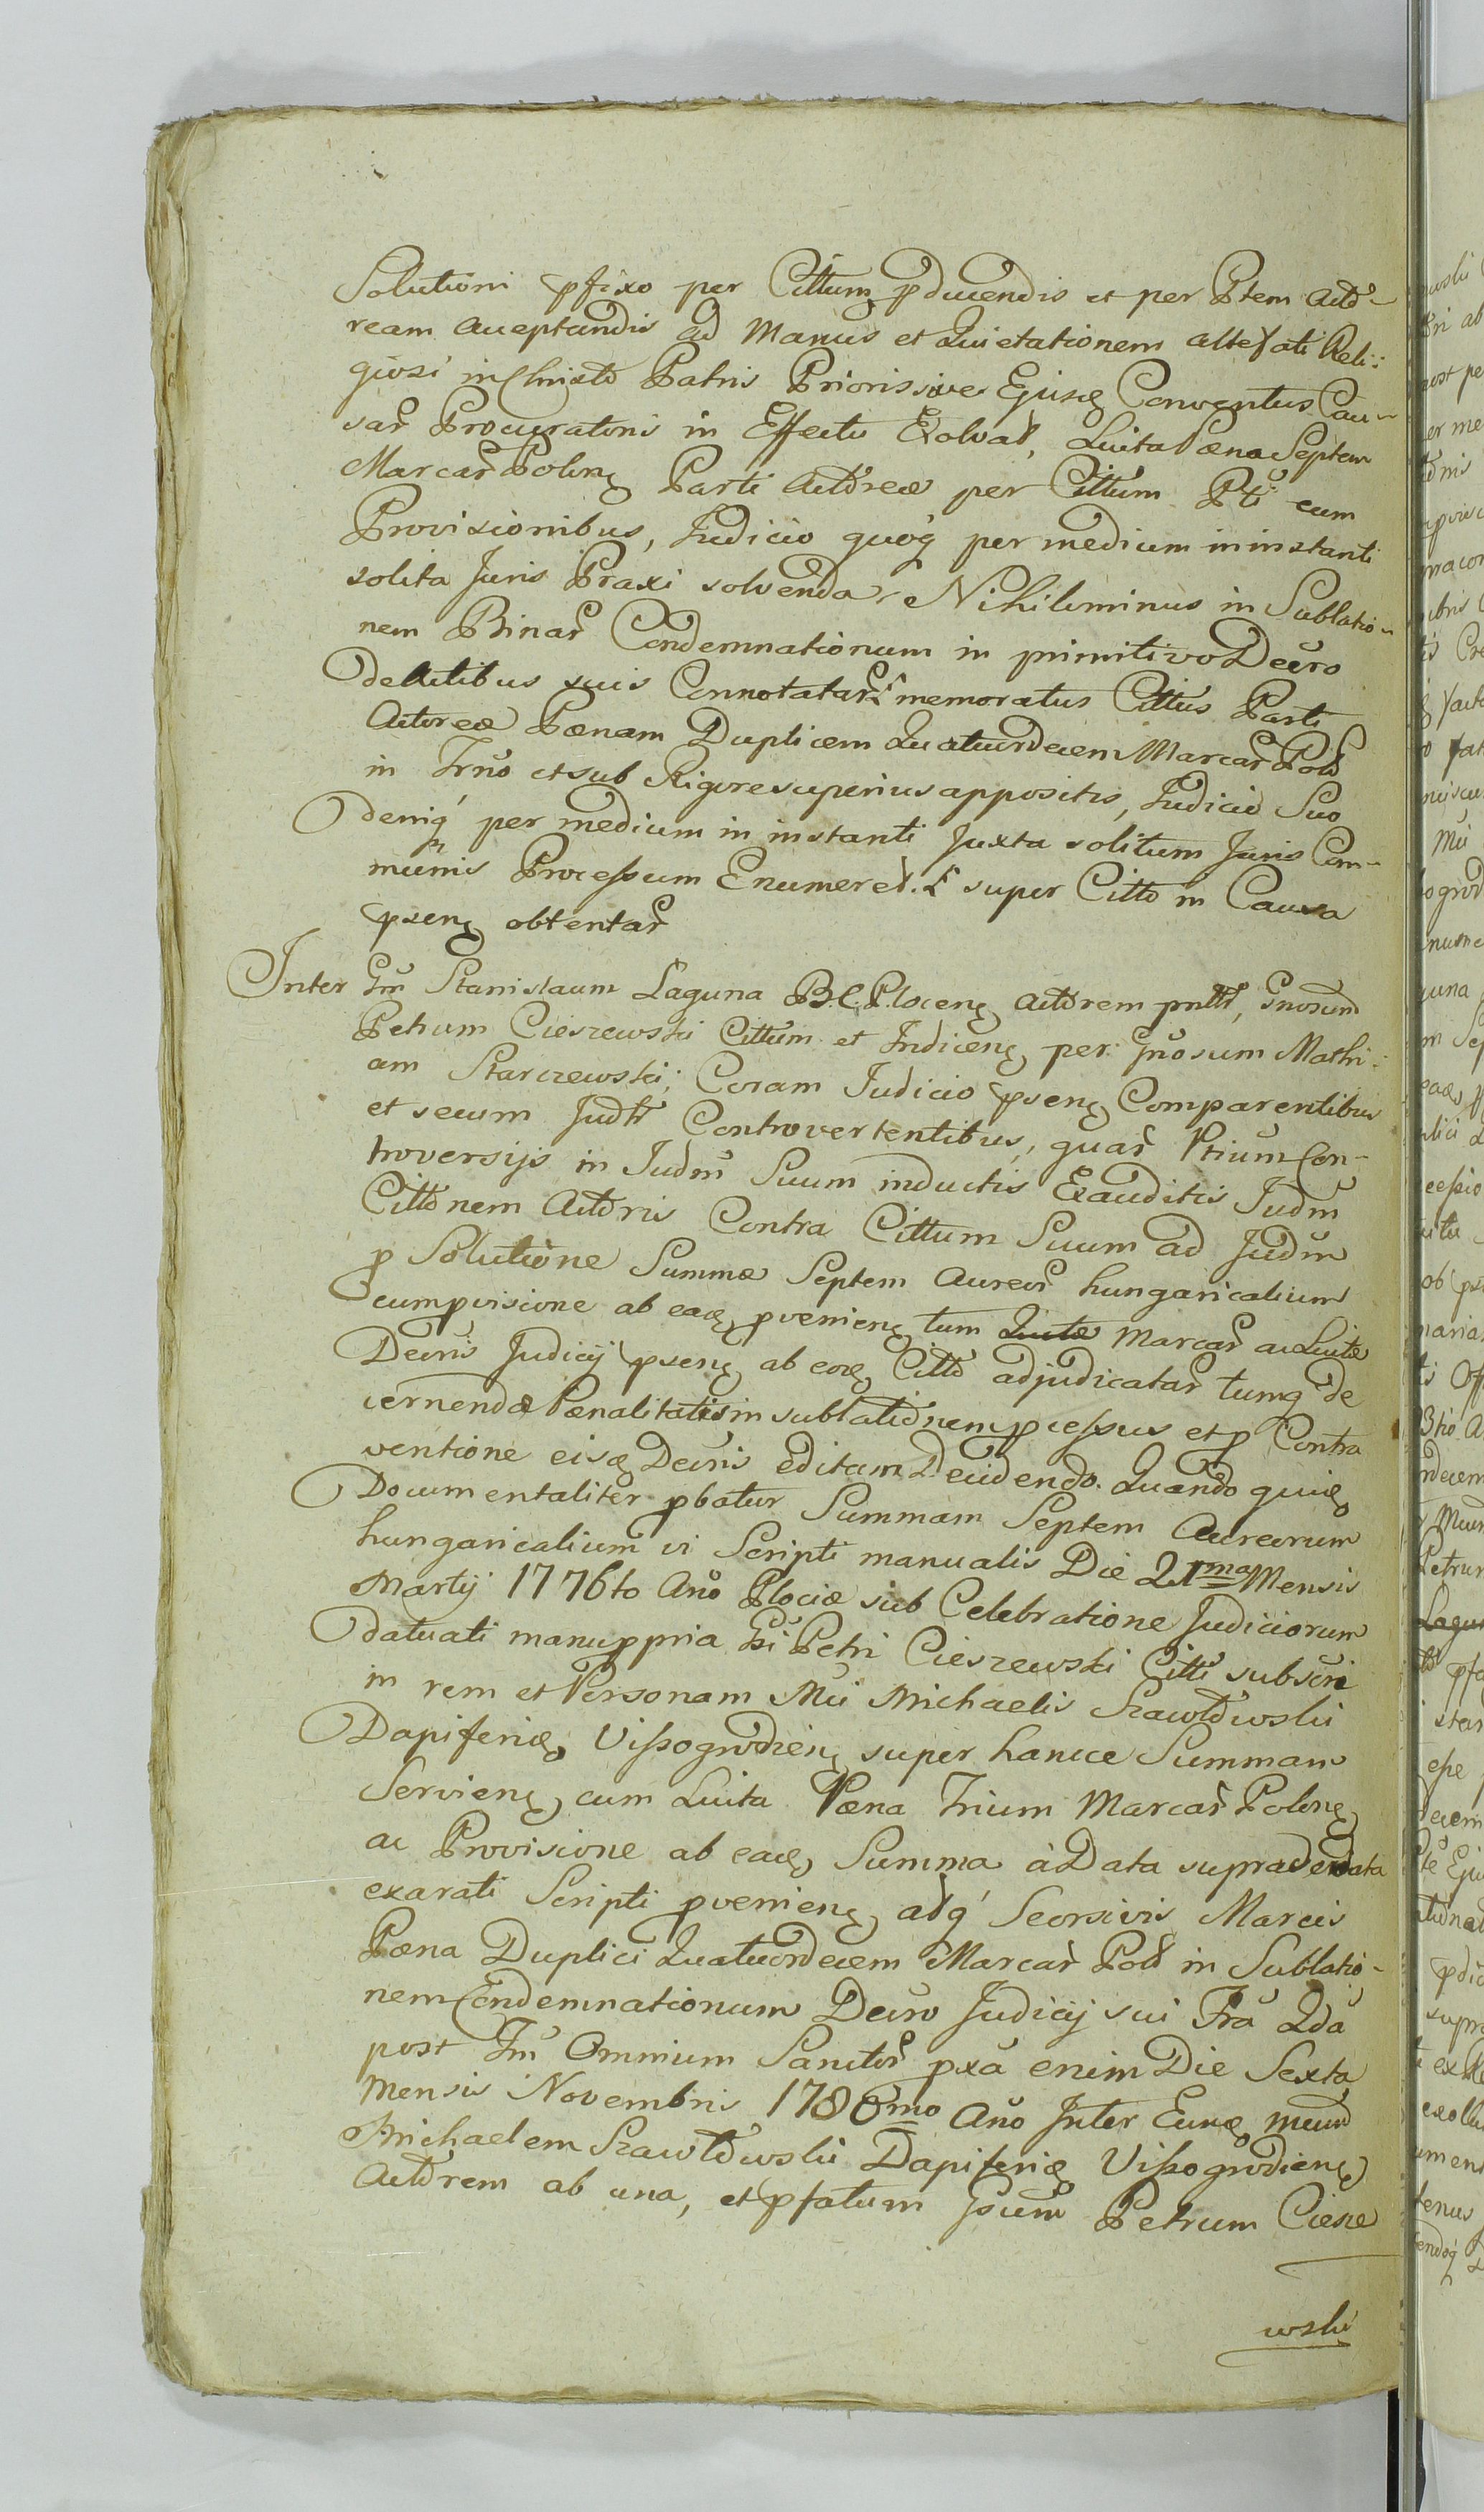 Solutioni pfixo per Cittum pducendis et per Ptem Acto-
ream Acceptandis ad Manus et Quietationem attefati Reli-
giosi in Christo Patris Prioris sive Ejusq Conventus Cau-
sar Procuratoris in Effectu Exolvat, Luita Pæna Septem
Marcar Polonq Parti Actoreæ per Cittum Pti cum
Provisionibus, Judicio quoq per medium in instanti
solita Juris Praxi solvenda, Nihilominus in Sublatio-
nem Binar Condemnationum in primitivo Decro
debitibus suis Connotatar memoratus Cittus Parti
Actoreæ Pænam Duplicem Quatuordecem Marcar Pol
in Trno et sub Rigore superius appositis, Judicio Suo
deniq per medium in instanti Juxta solitum Juris Com-
munis Processum Enumeret. super Citto in Causa
psenq obtentar
Inter Gm Stanislaum Laguna B.C.Plocenq Actorem pntt, Gnosum
Petrum Cieszewski Cittum et Indicenq per Gnosum Mathi-
am Starczewski; Coram Judicio psenq Comparentibus
et secum Judtr Controvertentibus, quar Ptium Con-
troversijs in Judm Suum inductis Exauditis Judm
Cittonem Actoris Contra Cittum Suum ad Judm
p Solutione Summæ Septem Aureor hungaricalium
cum pvisione ab eaq pvenienq tum Luitæ Marcar ac Luitæ
Decris Judicij psenq ab eoq Citto adjudicatar tumq de
cernendæ Pænalitatis in sublationem pcessus et p Contra
ventione eisq Decris editam Decidendo. Quando quiq
Documentaliter pbatur Summam Septem Aureorum
hungaricalium vi Scripti manualis Die 21ma Mensis
Martij 1776to Ano Plociæ sub Celebratione Judiciorum
datuati manu ppria Gsi Petri Cieszewski Citti subscri
in rem et Personam Mci Michaelis Szawłowski
Dapiferiq Vissogrodzienq super hancce Summam
Servienq cum Luita Pæna Trium Marcar Polonq
ac Provisione ab eaq Summa à Data supra de data
exarati Scripti pvenienq adq Seorsivis Marcis
Pæna Duplici Quatuordecem Marcar Pol in Sublatio-
nem Condemnationum Decro Judicij sui Fra 2da
post Fm Omnium Sanctor pxa enim Die Sexta
Mensis Novembris 1786mo Ano Inter Eunq Mcum
Michaelem Szawłowski Dapiferiq Vissogrodienq
Actorem ab una, et pfatum Gsum Petrum Ciesze
wski